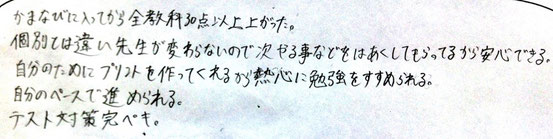 かまなびに入ってから全教科30点以上上がった。
個別とは違い先生が変わらないので次やる事などをはあくしてもらってるから安心できる。
自分のためにプリントを作ってくれるから熱心に勉強をすすめられる。
自分のペースで進められる。
テスト対策完ペキ。